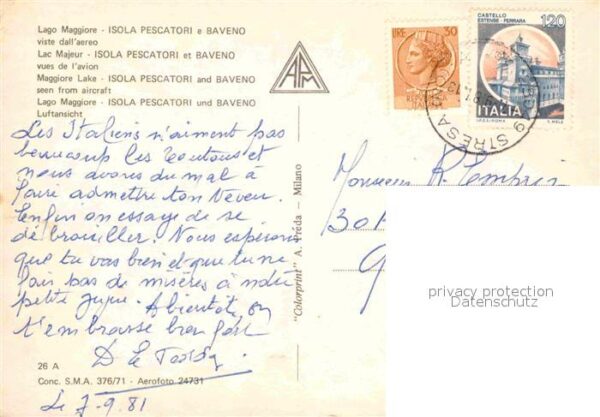 Lago Maggiore - ISOLA PESCATORI e BAVENO
viste dall'aereo
Lac Majeur - ISOLA PESCATORI et BAVENO
vues de l'avion
Maggiore Lake - ISOLA PESCATORI and BAVENO
seen from aircraft
Lago Maggiore - ISOLA PESCATORI und BAVENO
Luftansicht
APM
LIRE 50
CASTELLO
ESTENSE - FERRARA
120
ITALIA
STRESA
Les Italiens n'aiment pas
beaucoup les toutous et
nous avons du mal à
faire admettre ton neveu.
Enfin on essaye de se
débrouiller. Nous espérons
que tu vas bien et que tu ne
fais pas de misères à notre
petite A bientôt, on
t'embrasse bien fort
26 A
Conc. S.M.A. 376/71 - Aerofoto 24731
Le 7-9.81
"Colorprint" A. Préda - Milano
Monsieur R.
privacy protection
Datenschutz